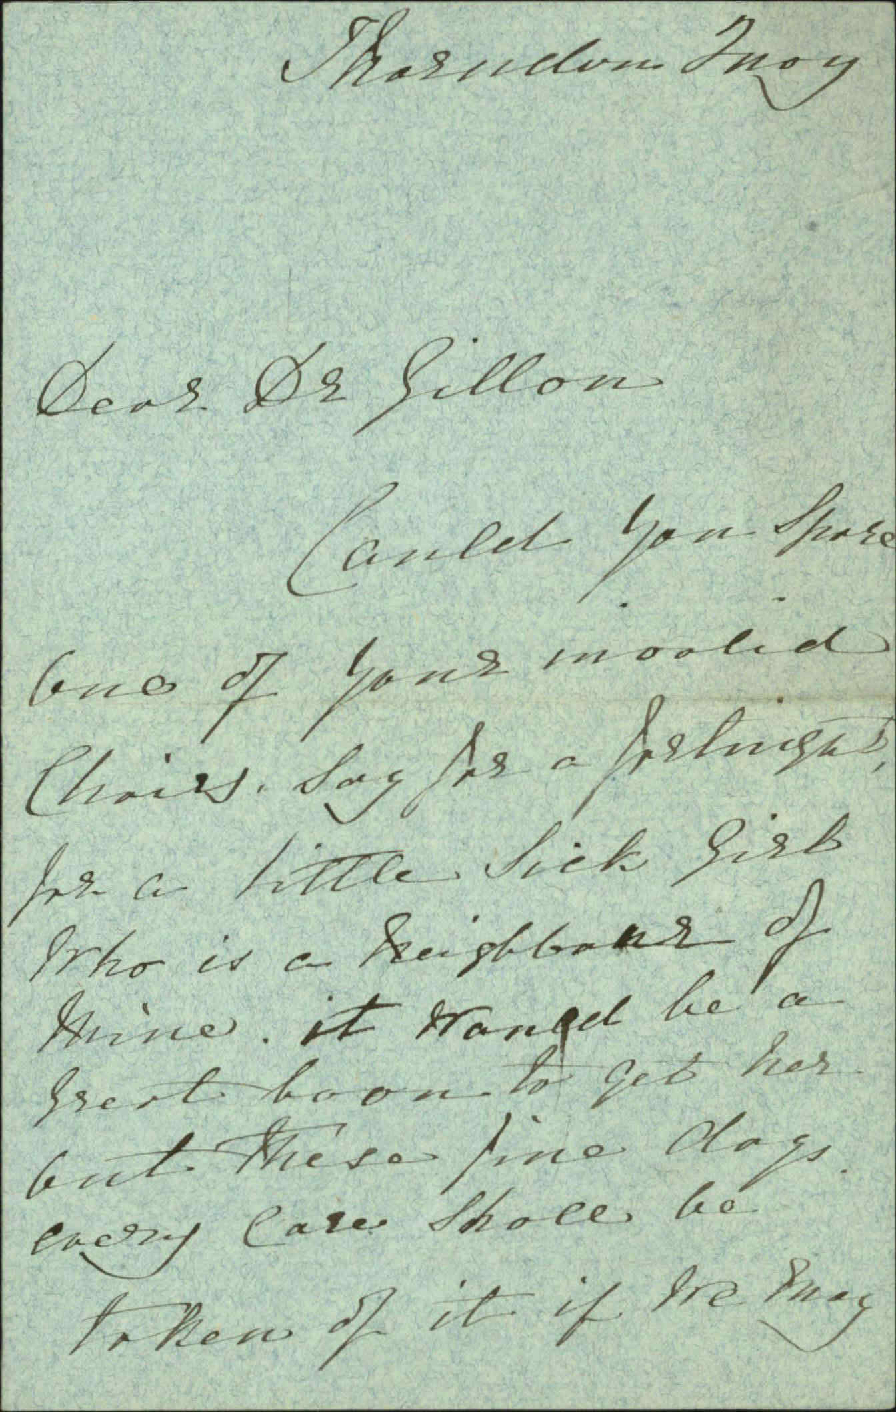 Thorndon Quay
Dear Dr Gillon
Could you spare
one of your invalid
Chairs. Say for a fortnight,
for a little Sick Girl
Who is a Neighbour of
Mine. it Would be a
great boon to get her
out these fine days.
every Care shall be
taken of it if We May